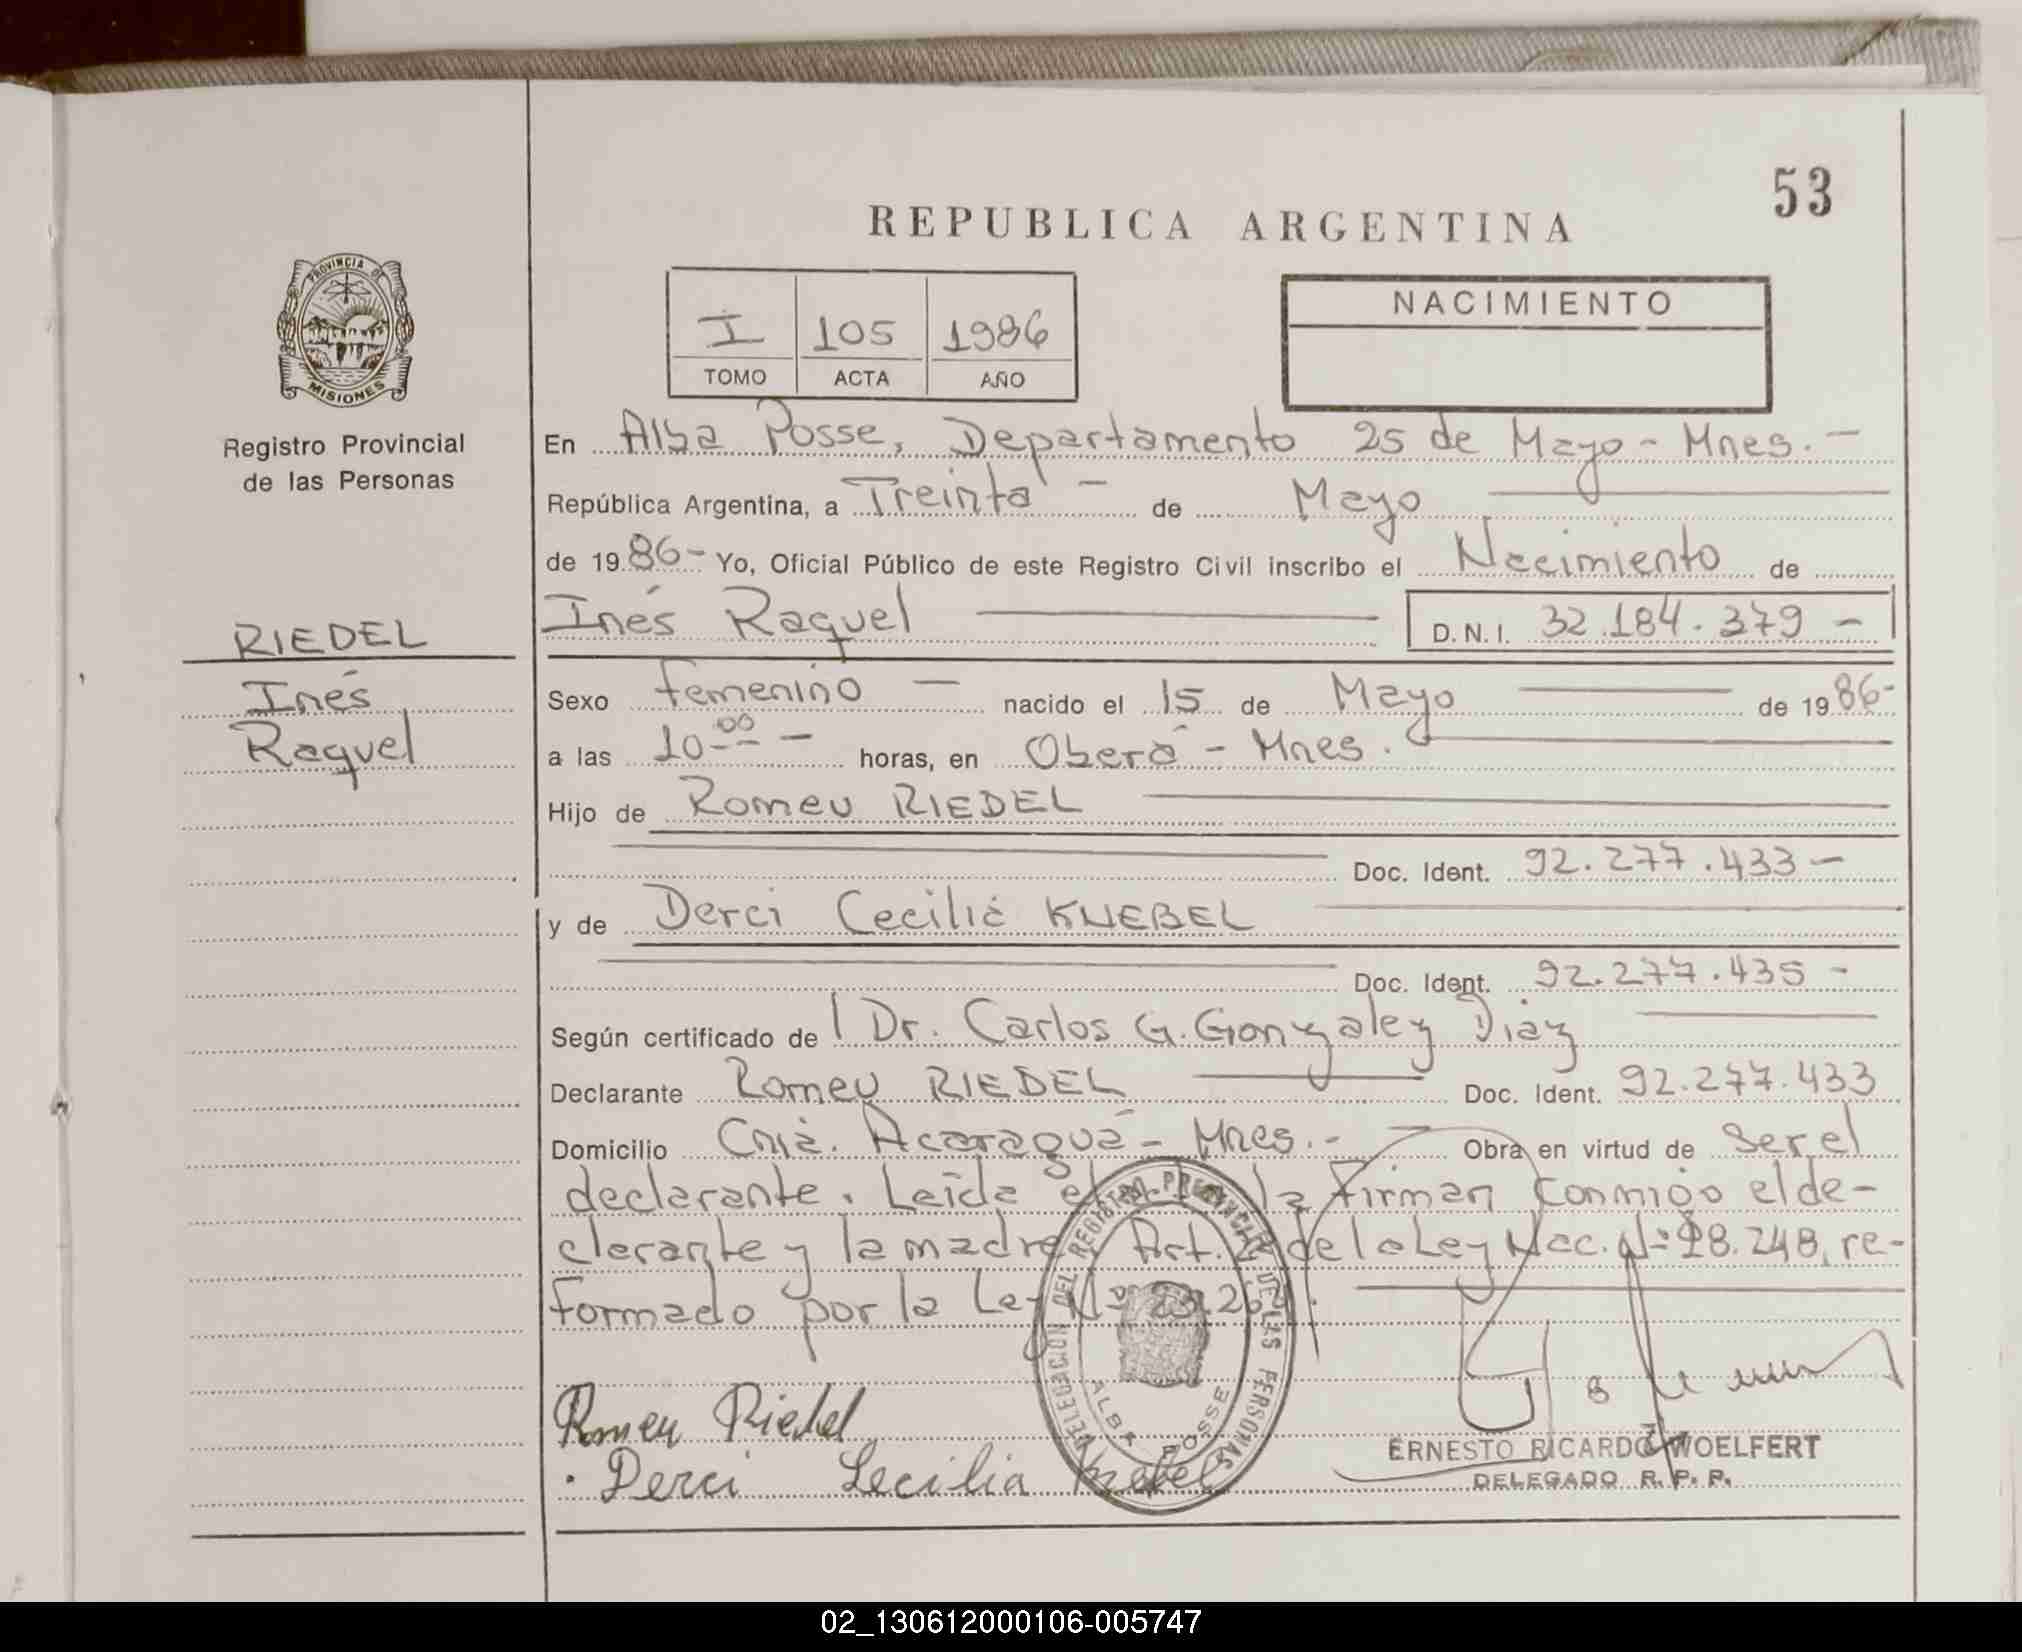 53
REPUBLICA ARGENTINA
PROVINCIA DE
MISIONES
Registro Provincial
de las Personas
I 105 1986
TOMO ACTA AÑO
NACIMIENTO
En Alba Posse, Departamento 25 de Mayo - Mnes. -
República Argentina, a Treinta - de Mayo
de 1986 - Yo, Oficial Público de este Registro Civil inscribo el Nacimiento de
Inés Raquel D.N.I. 32.184.379 -
RIEDEL
Inés
Raquel
Sexo femenino - nacido el 15 de Mayo de 1986-
a las 10.00 - horas, en Oberá - Mnes.
Hijo de Romeu RIEDEL
Doc. Ident. 92.277.433 -
y de Derci Cecilia KNEBEL
Doc. Ident. 92.277.435 -
Según certificado de l Dr. Carlos G. Gonzalez Diaz
Declarante Romeu RIEDEL Doc. Ident. 92.277.433
Domicilio Cnia. Acaraguá - Mnes. - Obra en virtud de ser el
declarante. Leída el la firman conmigo el de-
clarante y la madre Art. de la Ley Nac. Nº 18.248, re-
formado por la Ley Nº 23.262.
DELEGACION DEL REGISTRO PROVINCIAL DE LAS PERSONAS
ALBA POSSE
Romeu Riedel
Derci Cecilia Knebel
ERNESTO RICARDO WOELFERT
DELEGADO R. P. P.
02_130612000106-005747